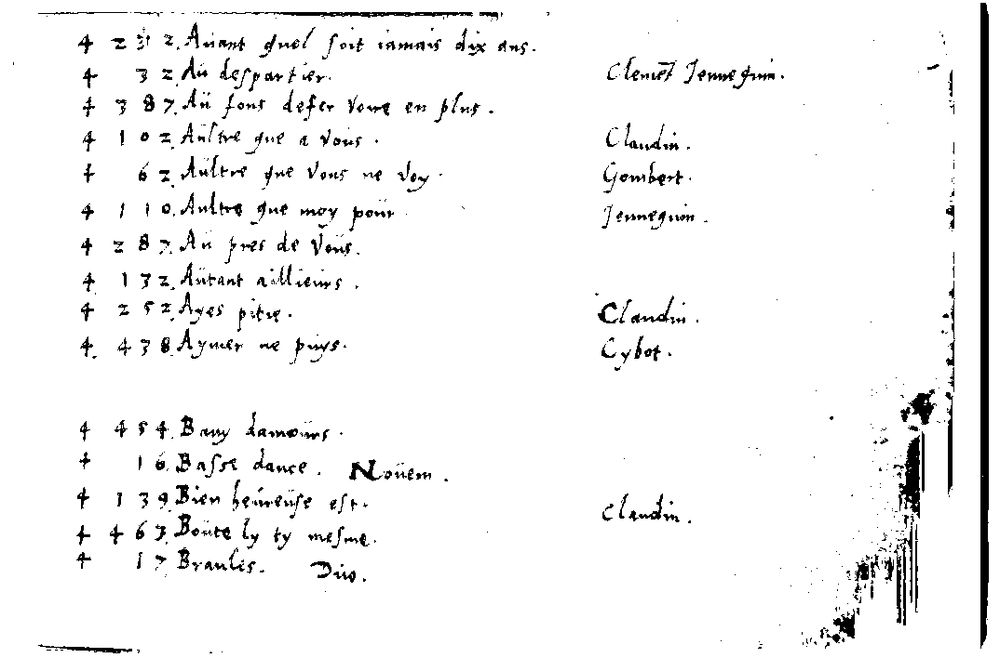 4 232. Auant quel soit iamais dix ans.
4 32. Aü despartier. Clemēt Jennequin.
4 387. Aü fons defer Voire en plus.
4 102. Aültre que a Vous. Claudin.
4 62. Aültre que Vous ne Voy. Gombert.
4 110. Aultre que moy poür. Jennequin.
4 287. Aü pres de Voüs.
4 132. Aütant aillieürs.
4 252. Ayes pitie. Claudin.
4 438. Aymer ne puys. Cybot.
4 454. Bany damoürs.
4 16. Basse dance. Noüem.
4 139. Bien heüreüse est. Claudin.
4 463. Boüte ly ty mesme.
4 17. Branles. Düo.